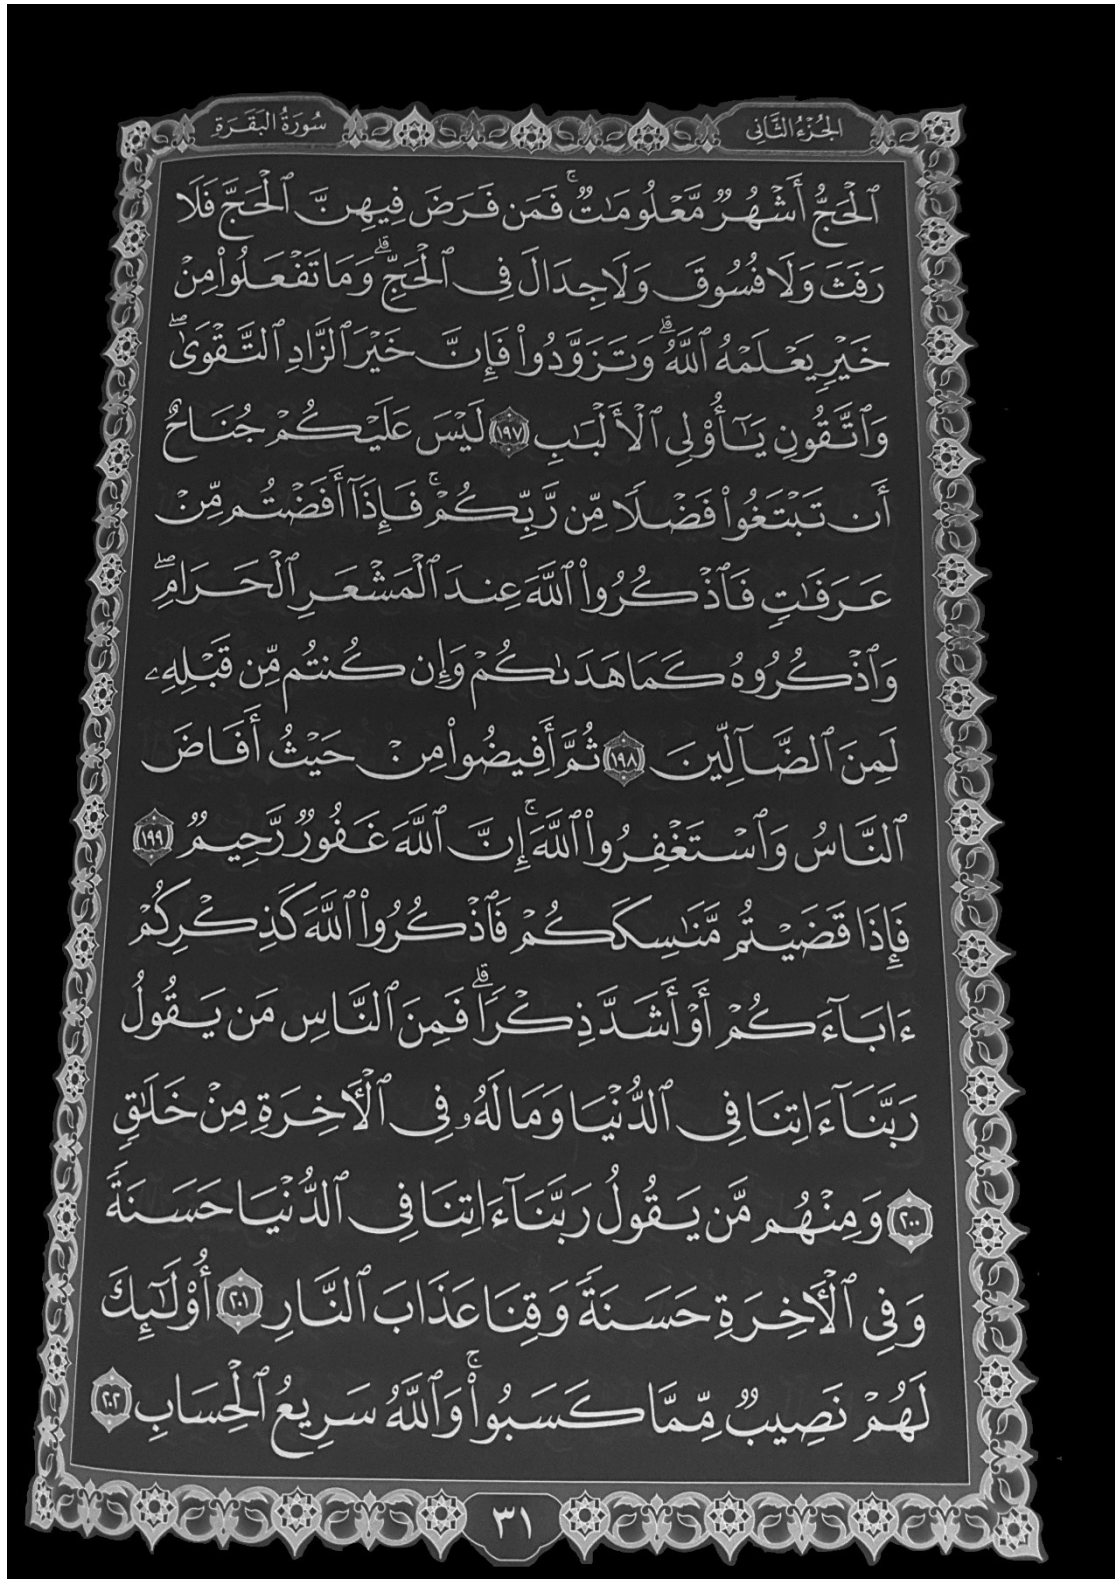 الجُزْءُ الثَّانِي
سُورَةُ البَقَرَةِ
ٱلْحَجُّ أَشْهُرٌ مَّعْلُومَٰتٌ ۚ فَمَن فَرَضَ فِيهِنَّ ٱلْحَجَّ فَلَا
رَفَثَ وَلَا فُسُوقَ وَلَا جِدَالَ فِى ٱلْحَجِّ ۗ وَمَا تَفْعَلُوا۟ مِنْ
خَيْرٍ يَعْلَمْهُ ٱللَّهُ ۗ وَتَزَوَّدُوا۟ فَإِنَّ خَيْرَ ٱلزَّادِ ٱلتَّقْوَىٰ ۖ
وَٱتَّقُونِ يَـٰٓأُو۟لِى ٱلْأَلْبَـٰبِ ١٩٧ لَيْسَ عَلَيْكُمْ جُنَاحٌ
أَن تَبْتَغُوا۟ فَضْلًا مِّن رَّبِّكُمْ ۚ فَإِذَآ أَفَضْتُم مِّنْ
عَرَفَـٰتٍ فَٱذْكُرُوا۟ ٱللَّهَ عِندَ ٱلْمَشْعَرِ ٱلْحَرَامِ ۖ
وَٱذْكُرُوهُ كَمَا هَدَىٰكُمْ وَإِن كُنتُم مِّن قَبْلِهِۦ
لَمِنَ ٱلضَّآلِّينَ ١٩٨ ثُمَّ أَفِيضُوا۟ مِنْ حَيْثُ أَفَاضَ
ٱلنَّاسُ وَٱسْتَغْفِرُوا۟ ٱللَّهَ ۚ إِنَّ ٱللَّهَ غَفُورٌ رَّحِيمٌ ١٩٩
فَإِذَا قَضَيْتُم مَّنَـٰسِكَكُمْ فَٱذْكُرُوا۟ ٱللَّهَ كَذِكْرِكُمْ
ءَابَآءَكُمْ أَوْ أَشَدَّ ذِكْرًا ۗ فَمِنَ ٱلنَّاسِ مَن يَقُولُ
رَبَّنَآ ءَاتِنَا فِى ٱلدُّنْيَا وَمَا لَهُۥ فِى ٱلْـَٔاخِرَةِ مِنْ خَلَـٰقٍ
٢٠٠ وَمِنْهُم مَّن يَقُولُ رَبَّنَآ ءَاتِنَا فِى ٱلدُّنْيَا حَسَنَةً
وَفِى ٱلْـَٔاخِرَةِ حَسَنَةً وَقِنَا عَذَابَ ٱلنَّارِ ٢٠١ أُو۟لَـٰٓئِكَ
لَهُمْ نَصِيبٌ مِّمَّا كَسَبُوا۟ ۚ وَٱللَّهُ سَرِيعُ ٱلْحِسَابِ ٢٠٢
٣١